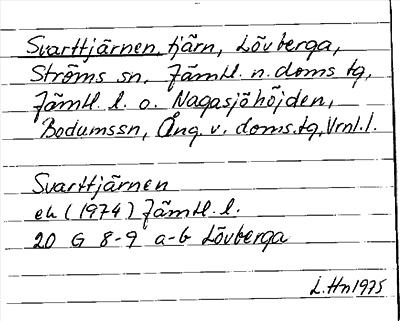 Svarttjärnen, tjärn, Lövberga,
Ströms sn, Jämtl. n. doms. tg,
Jämtl. l. o. Nagasjöhöjden,
Bodumssn, Ång. v. doms.tg, Vrnl.l.
Svarttjärnen
ek (1974) Jämtl. l.
20 G 8-9 a-b Lövberga
L. Hn 1975